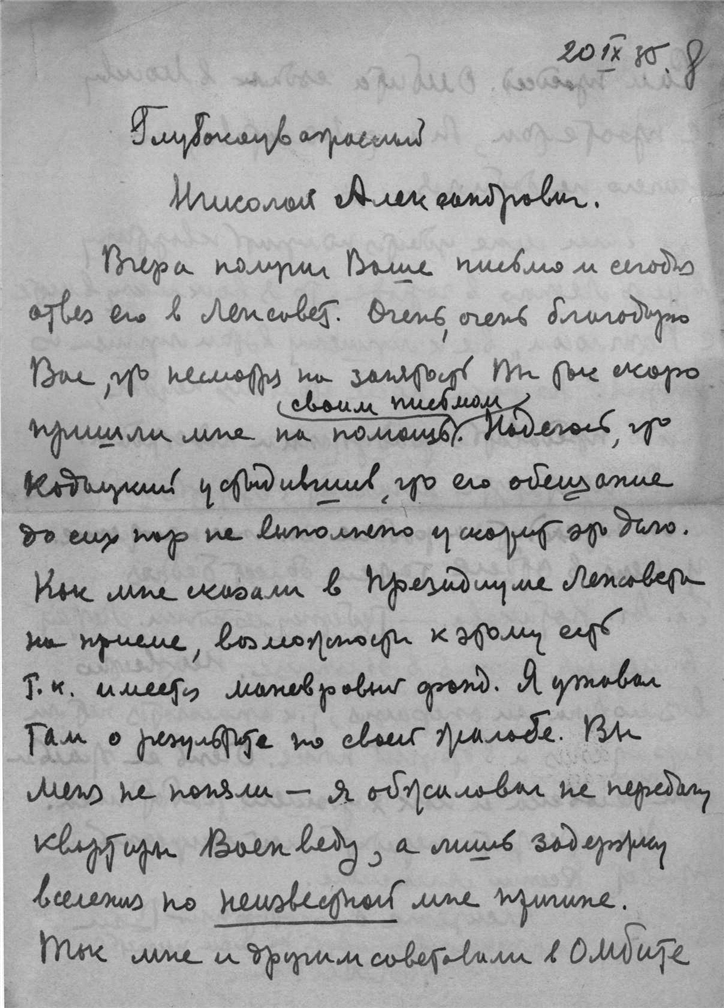 20 IX 35. 8
Глубокоуважаемый
Николай Александрович.
Вчера получил Ваше письмо и сегодня
отвез его в Ленсовет. Очень, очень благодарю
Вас, что несмотря на занятость Вы так скоро
своим письмом
пришли мне на помощь. Надеюсь, что
Кодацкий устыдившись, что его обещание
до сих пор не выполнено ускорит это дело.
Как мне сказали в Президиуме Ленсовета
на приеме, возможности к этому есть
т.к. имеется маневровый фонд. Я узнавал
там о результате по своей жалобе. Вы
меня не поняли — я обжаловал не передачу
квартиры Военведу, а лишь задержку
вселения по неизвестной мне причине.
Так мне и другим советовали в Омбите